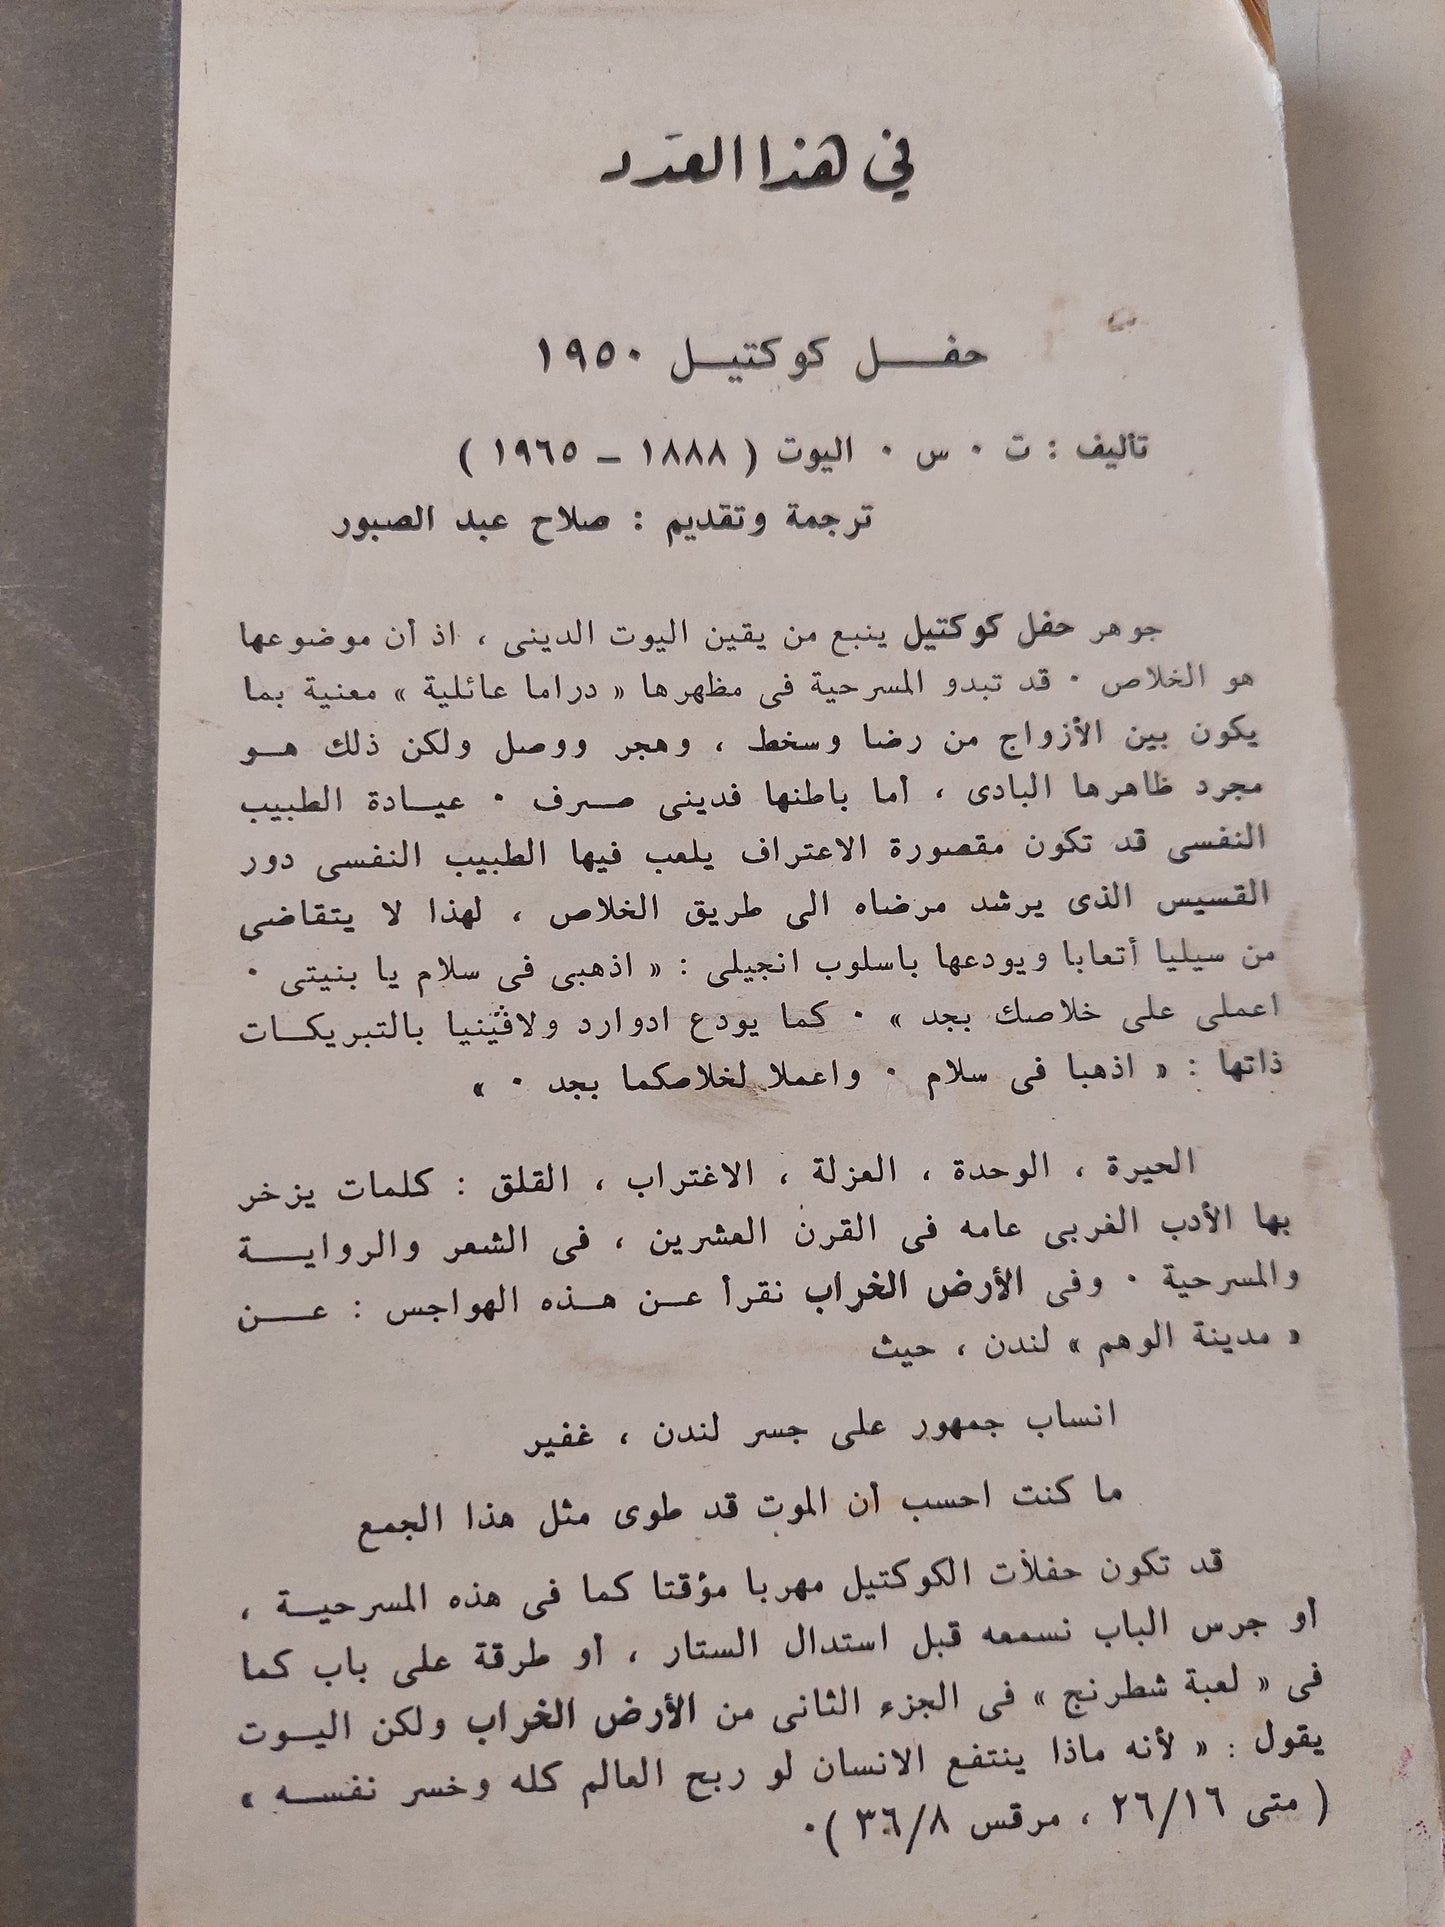 في هذا العدد
حفــل كوكتيــل ١٩٥٠
تأليف : ت . س . اليوت ( ١٨٨٨ – ١٩٦٥ )
ترجمة وتقديم : صلاح عبد الصبور
جوهر حفل كوكتيل ينبع من يقين اليوت الدينى ، اذ أن موضوعها
هو الخلاص . قد تبدو المسرحية فى مظهرها « دراما عائلية » معنية بما
يكون بين الأزواج من رضا وسخط ، وهجر ووصل ولكن ذلك هــو
مجرد ظاهرها البادى ، أما باطنها فدينى صــرف . عيــادة الطبيب
النفسى قد تكون مقصورة الاعتراف يلعب فيها الطبيب النفسى دور
القسيس الذى يرشد مرضاه الى طريق الخلاص ، لهذا لا يتقاضى
من سيليا أتعابا ويودعها باسلوب انجيلى : « اذهبى فى سلام يا بنيتى .
اعملى على خلاصك بجد » . كما يودع ادوارد ولاڤينيا بالتبريكــات
ذاتها : « اذهبا فى سلام . واعملا لخلاصكما بجد . »
الحيرة ، الوحدة ، العزلة ، الاغتراب ، القلق : كلمات يزخر
بها الأدب الغربى عامه فى القرن العشرين ، فى الشعر والروايــة
والمسرحية . وفى الأرض الخراب نقرأ عــن هــذه الهواجس : عــن
« مدينة الوهم » لندن ، حيث
انساب جمهور على جسر لندن ، غفير
ما كنت احسب أن الموت قد طوى مثل هذا الجمع
قد تكون حفلات الكوكتيل مهربا مؤقتا كما فى هذه المسرحيــة ،
أو جرس الباب نسمعه قبل استدال الستار ، أو طرقة على باب كما
فى « لعبة شطرنج » فى الجزء الثانى من الأرض الخراب ولكن اليــوت
يقول : « لأنه ماذا ينتفع الانسان لو ربح العالم كله وخسر نفســه »
( متى ٢٦/١٦ ، مرقس ٣٦/٨ ).